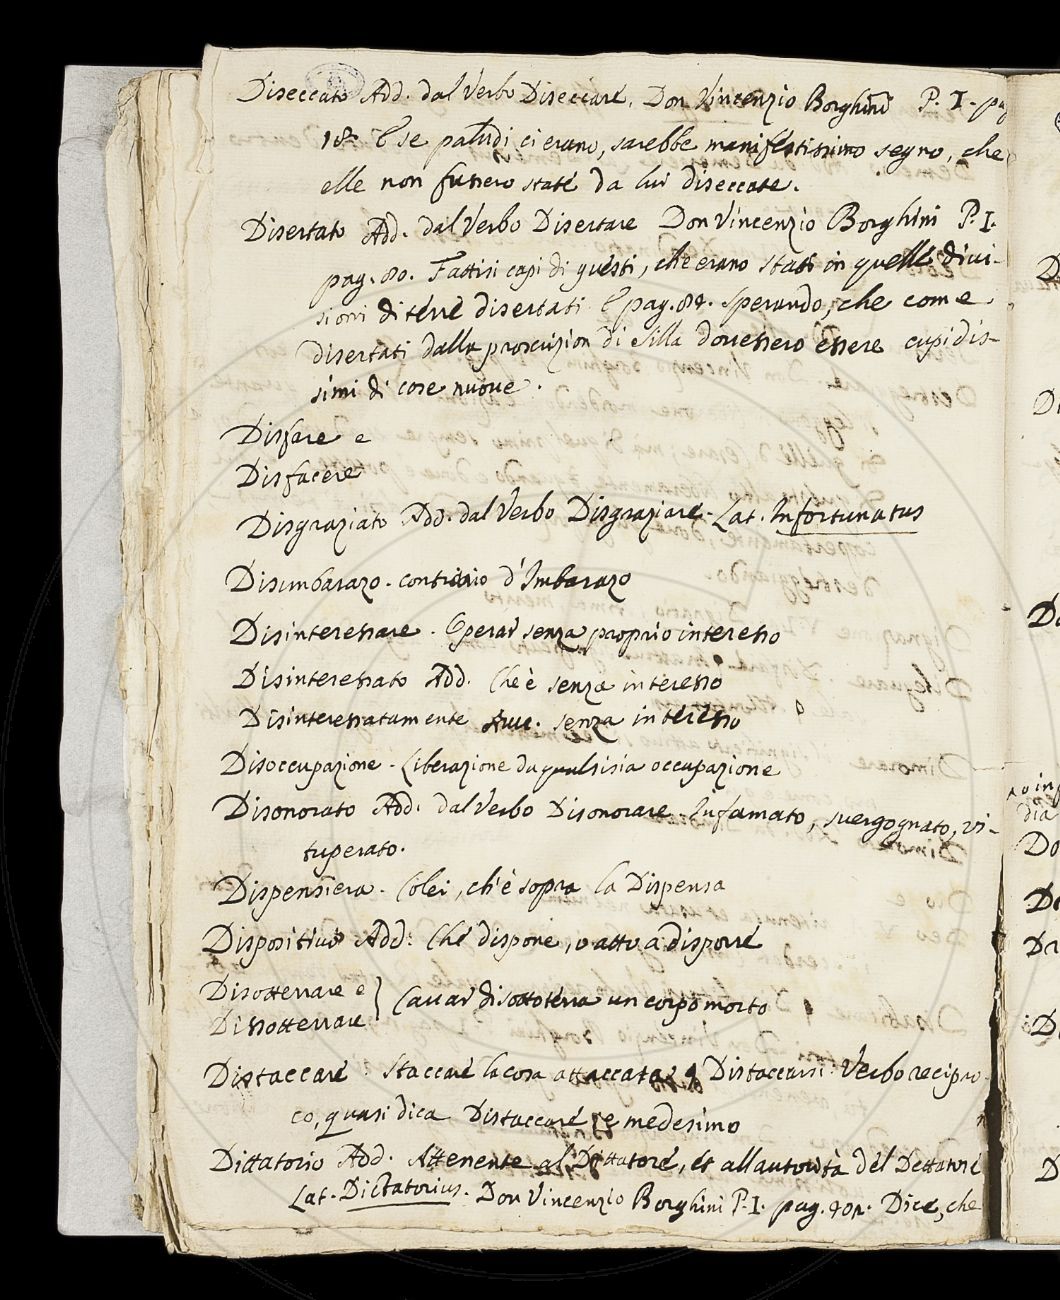 Diseccato Add. dal Verbo Diseccare. Don Vincenzio Borghini P. I. pag
18. E se paludi ci erano, sarebbe manifestissimo segno, che
elle non fussero state da lui diseccate.
Disertato Add. dal Verbo Disertare Don Vincenzio Borghini P. I.
pag. 80. Fattisi capi di questi, che erano stati in quelle divi-
sioni di terre disertati E pag. 84. sperando, che come
disertati dalla proscrizion di Silla dovessero essere cupidis-
simi di cose nuove.
Disfare e
Disfacere
Disgraziato Add. dal Verbo Disgraziare. Lat. Infortunatus
Disimbarazo. contrario d'Imbarazo
Disinteressare. Operar senza proprio interesso
Disinteressato Add. Che è senza interesso
Disinteressatamente Avve. senza interesso
Disoccupazione. Liberazione da qualsisia occupazione
Disonorato Add. dal Verbo Disonorare Infamato, svergognato, vi-
tuperato.
Dispensiera. Colei, ch'è sopra la Dispensa
Dispositivo Add. Che dispone, o atto a disporre
Disotterrare e } Cavar di sottoterra un corpo morto
Dissotterrare
Distaccare. Staccare la cosa attaccata, Distaccarsi Verbo recipro-
co, quasi dica Distaccare se medesimo
Dittatorio Add. Attenente al Dettatore, et all autorità del Dettatore
Lat. Dictatorius. Don Vincenzio Borghini P. I. pag. Dice, che